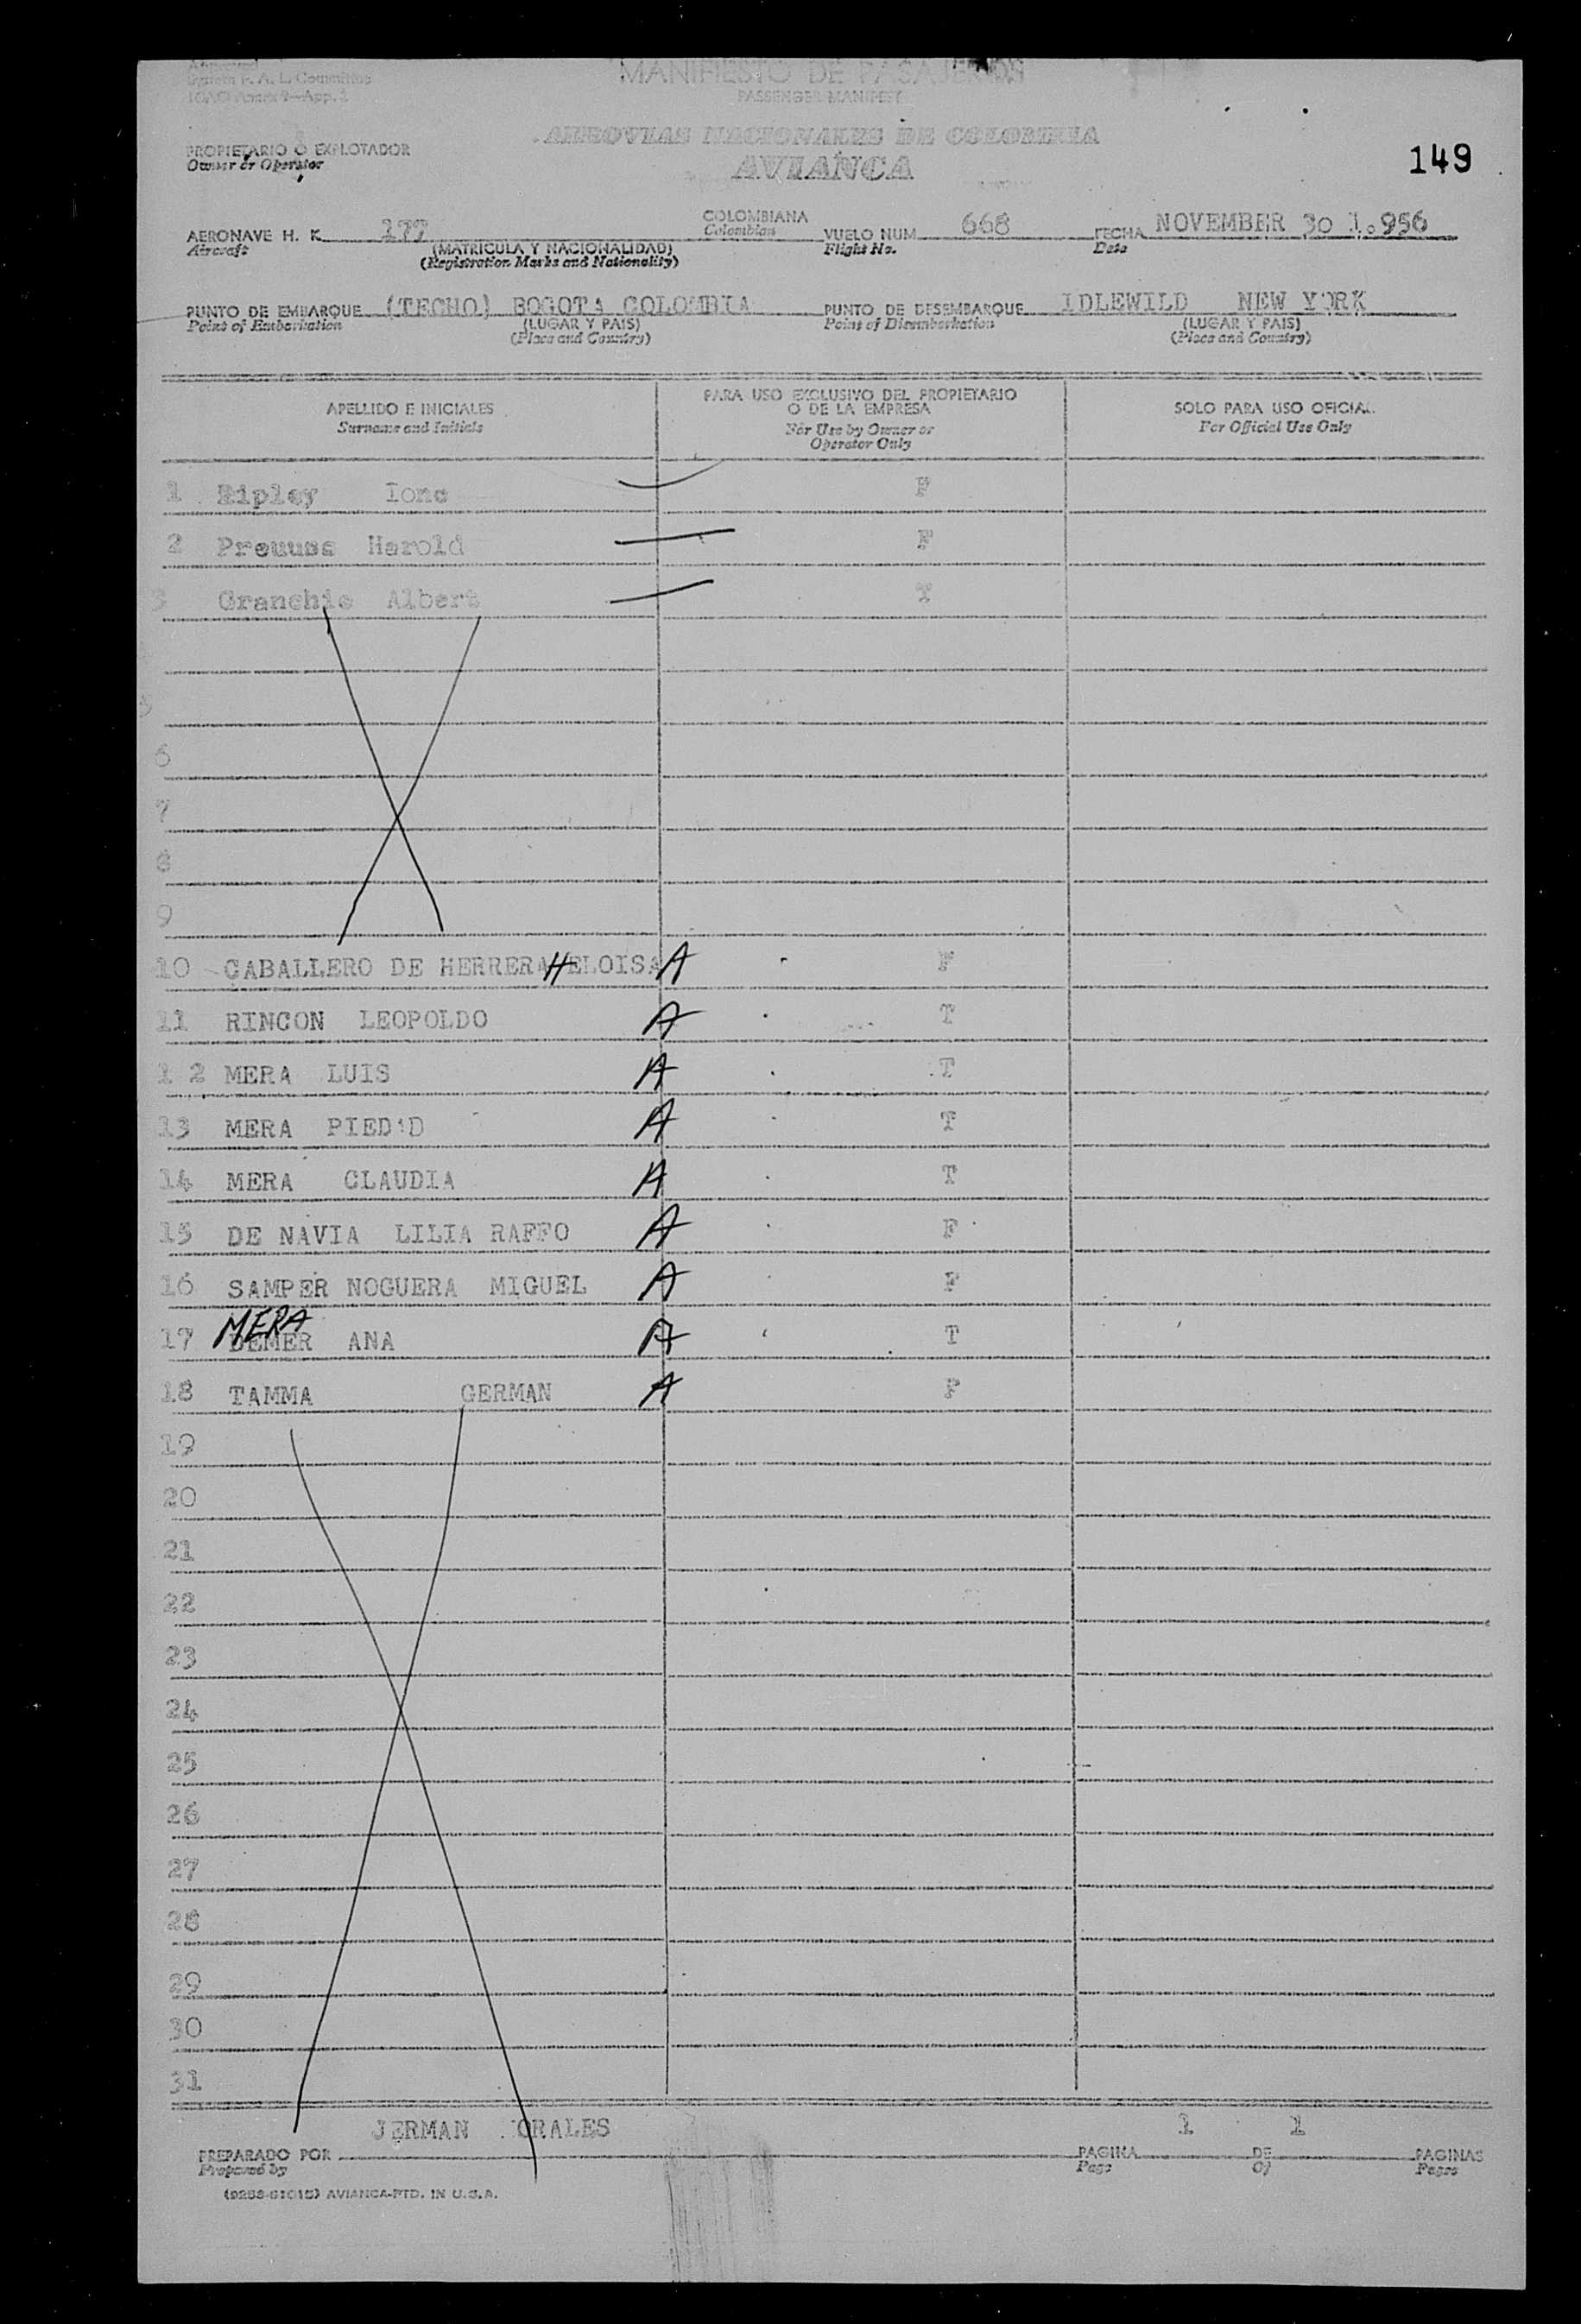 Approved
System F. A. L. Committee
ICAO Annex 9—App. 2
MANIFIESTO DE PASAJEROS
PASSENGER MANIFEST
AEROVIAS NACIONALES DE COLOMBIA
AVIANCA
149
PROPIETARIO O EXPLOTADOR
Owner or Operator
AERONAVE H. K. 177 COLOMBIANA VUELO NUM. 668 FECHA NOVEMBER 30 1.956
Aircraft (MATRICULA Y NACIONALIDAD) Colombian Flight No. Date
(Registration Marks and Nationality)
PUNTO DE EMBARQUE (TECHO) BOGOTA COLOMBIA PUNTO DE DESEMBARQUE IDLEWILD NEW YORK
Point of Embarkation (LUGAR Y PAIS) Point of Disembarkation (LUGAR Y PAIS)
(Place and Country) (Place and Country)
APELLIDO E INICIALES
Surname and Initials
PARA USO EXCLUSIVO DEL PROPIETARIO
O DE LA EMPRESA
For Use by Owner or
Operator Only
SOLO PARA USO OFICIAL
For Official Use Only
1 Ripley Ione F
2 Preuuss Harold F
3 Granchie Albert T
5
6
7
8
9
10 CABALLERO DE HERRERA HELOISA A F
11 RINCON LEOPOLDO A T
1 2 MERA LUIS A T
13 MERA PIEDAD A T
14 MERA CLAUDIA A T
15 DE NAVIA LILIA RAFFO A F
16 SAMPER NOGUERA MIGUEL A F
MERA
17 DEMER ANA A T
18 TAMMA GERMAN A F
19
20
21
22
23
24
25
26
27
28
29
30
31
JERMAN ORALES 1 1
PREPARADO POR PAGINA DE PAGINAS
Prepared by Page Of Pages
AVIANCA-PTD. IN U.S.A.